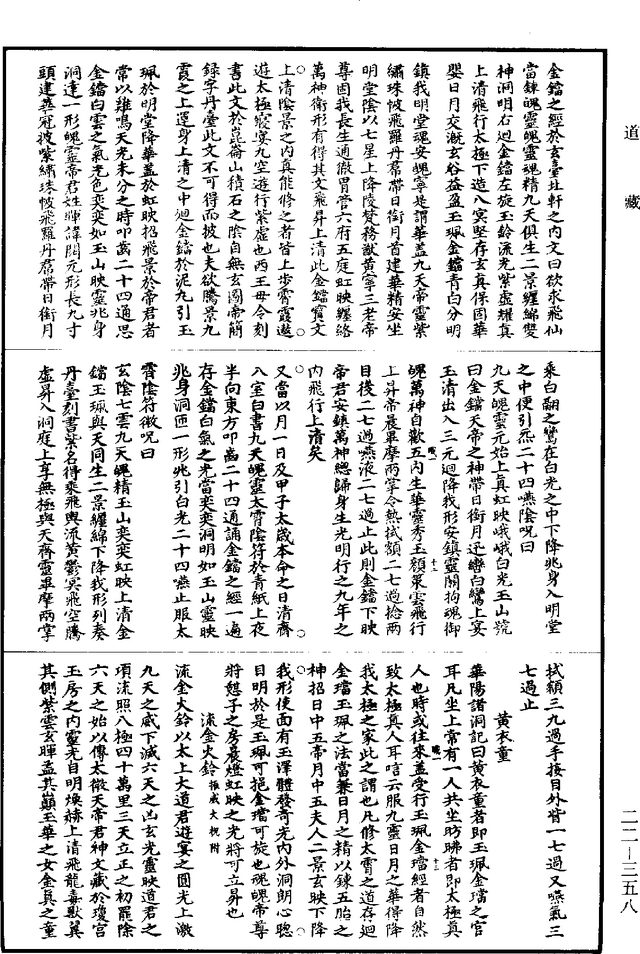 道藏
金鐺之經於玄臺北軒之内文曰欲求飛仙
當鍊魄靈魄靈魂精九天俱生二景纏綿雙
神洞明右迴金鐺左旋玉鈴流光紫虛耀真
上清飛行太極下造八冥堅存玄真保固華
嬰日月交溉玄谷益盈玉珮金鐺青白分明
鎮我明堂魂安魄寧是謂華蓋九天帝靈紫
繡珠帔飛羅丹帬帶日銜月首建華精安坐
明堂陰以七星上降陵梵務猷黄寧三老帝
尊固我長生通徹胃管六府五庭虹映纏絡
萬神衛形有得其文飛昇上清此金鐺寶文
上清陰景之内真能修之者皆上步霄霞遨
遊太極寢宴九空遊行紫虛也西王母令刻
書此文於崑崙山積石之陰自無玄圖帝簡
録字丹臺此文不可得而披也夫欲騰景九
霞之上運身上清之中迴金鐺於泥丸引玉
珮於明堂降華蓋於虹映招飛景於帝君者
常以雞鳴天光未分之時叩齒二十四通思
金鐺白雲之氣光色奕奕如玉山映靈兆身
洞達一形魄靈帝君姓暉諱閟元形長九寸
頭建蓉冠披紫繡珠帔飛羅丹帬帶日銜月
乘白翮之鸞在白光之中下降兆身入明堂
之中便引炁二十四嚥陰呪曰
九天魄靈元始上真虹映峨峨白光玉山號
曰金鐺天帝之神帶日銜月迅轡白鸞上宴
玉清出入三元迴降我形安鎮靈關拘魂御
魄萬神自歡五内生華靈秀玉顔策雲飛行
上昇帝晨畢摩兩掌令熱拭額二七過捻兩
目後二七過嚥液二七過止此則金鐺下映
帝君安鎮萬神總歸身生光明行之九年之
内飛行上清矣
又當以月一日及甲子太歲本命之日清齋
入室白書九天魄靈太霄陰符於青紙上夜
半向東方叩齒二十四通誦金鐺之經一過
存金鐺白氣之光當奕奕洞明如玉山靈映
兆身洞匝一形兆引白光二十四嚥止服太
霄陰符微呪曰
玄陰七雲九天魄精玉山奕奕虹映上清金
鐺玉珮與天同生二景纏綿下降我形列奏
丹臺刻書紫名得乘飛輿流黄鬱冥飛空騰
虛昇入洞庭上享無極與天齊靈畢摩兩掌
拭額三九過手接目外眥一七過又嚥氣三
七過止
黄衣童
華陽諸洞記曰黄衣童者即玉珮金璫之官
耳凡坐上常有一人共坐昉聽者即太極真
人也時或往來蓋受行玉珮金璫經者自然
致太極真人耳唁云服九靈日月之華得降
我太極之家此之謂也凡修太霄之道存迴
金璫玉珮之法當兼日月之精以鍊五胎之
神招日中五帝月中五夫人二景玄映下降
我形使面有玉澤體發奇光内外洞朗心聰
目明於是玉珮可挹金璫可旋也魂魄帝尊
將憇子之房晨燈虹映之光將可立昇也
流金火鈴 振威大祝附
流金火鈴以太上大道君遊宴之圓光上激
九天之威下滅六天之凶玄光靈映道君之
項流照八極四十萬里三天立正之初罷除
六天之始以傳太微天帝君神文藏於瓊宫
玉房之内靈光自明煥赫上清飛龍毒獸冀
其側紫雲玄暉孟其巔玉華之女金真之童
二二—三五八